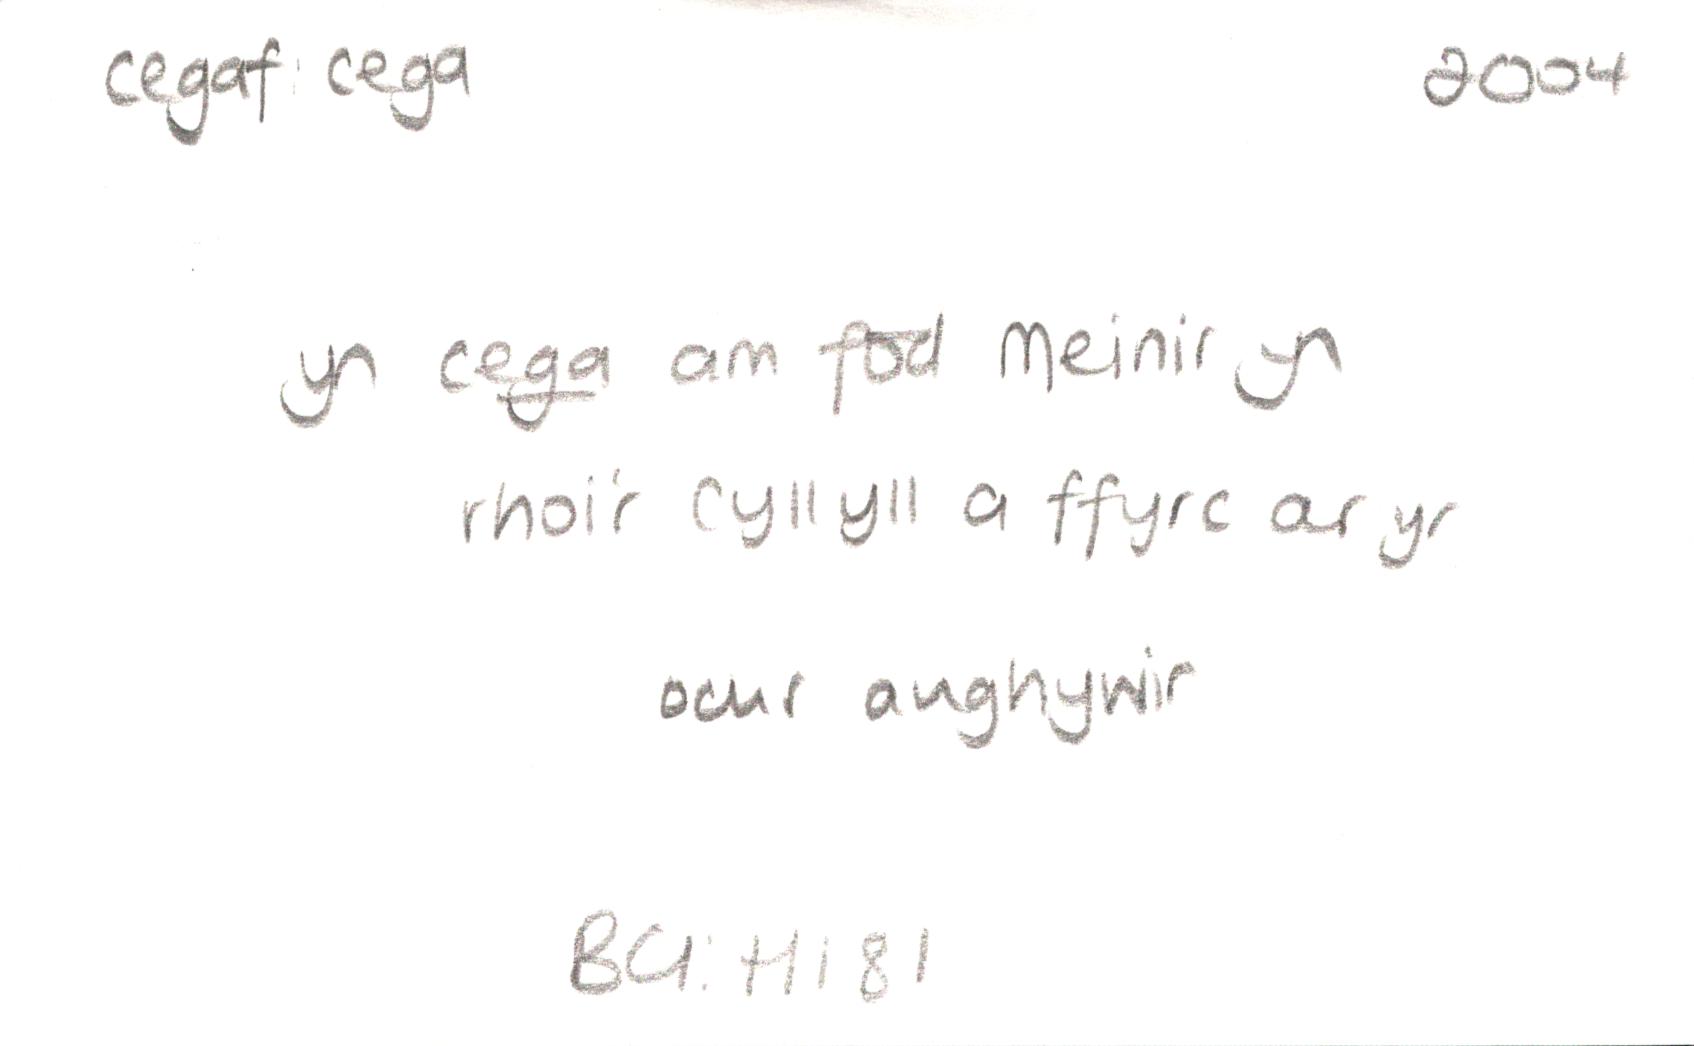 cegaf: cega 2004
yn cega am fod Meinir yn
rhoi'r cyllyll a ffyrc ar yr
ochr anghywir
BG: H 181